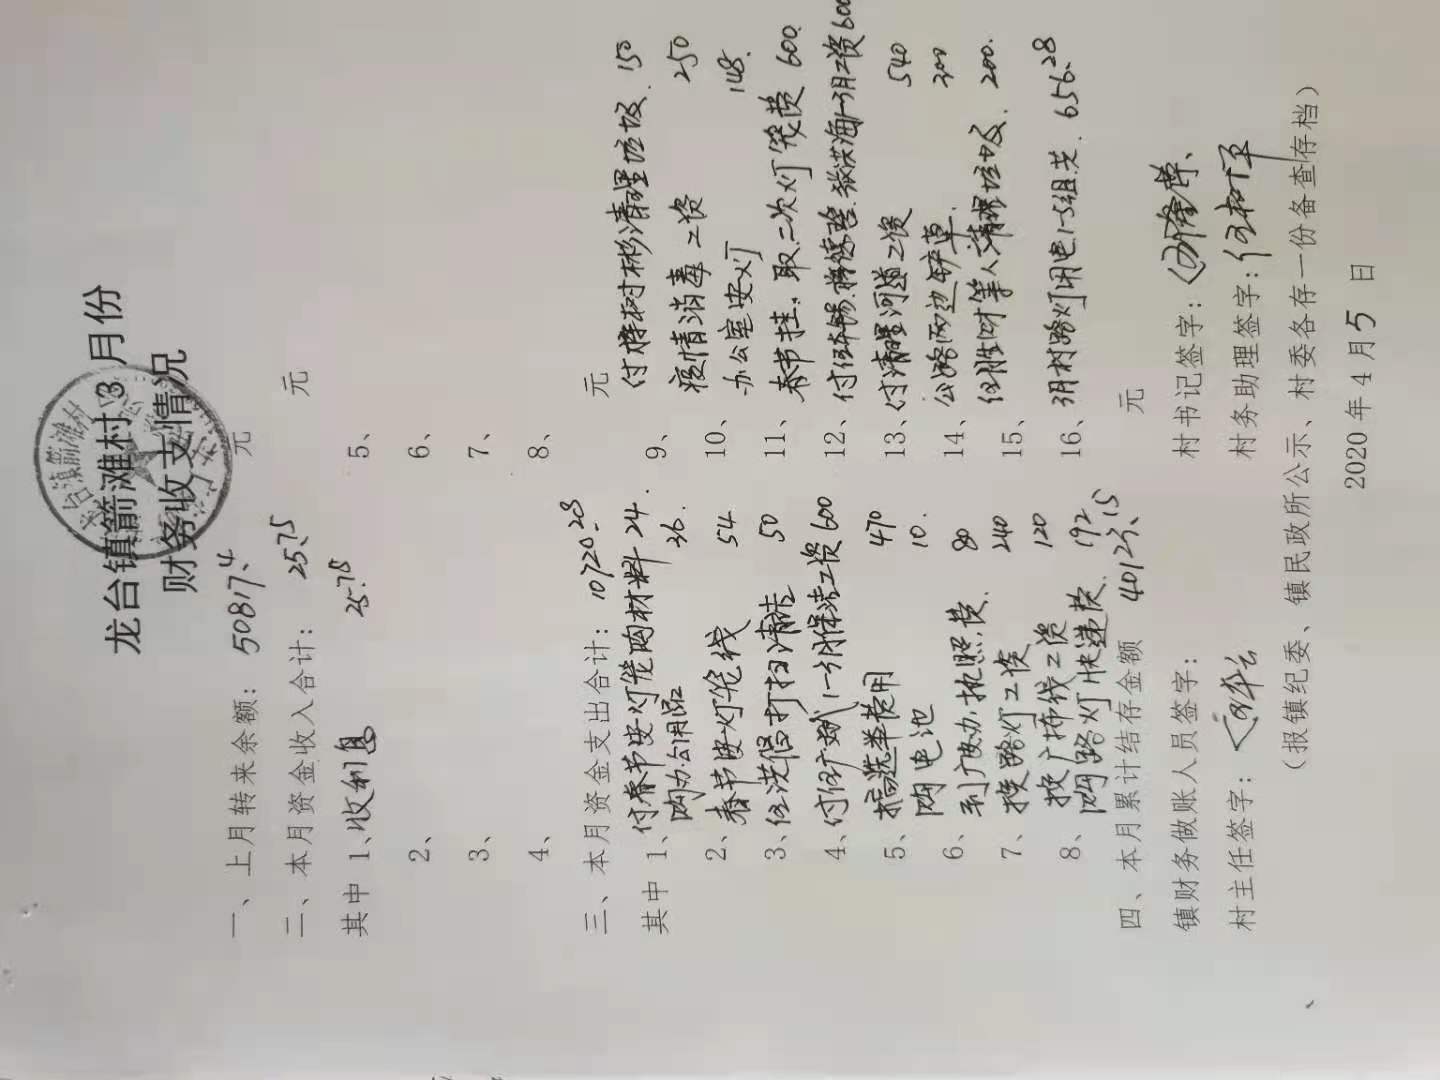 龙台镇箭滩村3月份
财务收支情况
一、上月转来余额：50817.4 元
二、本月资金收入合计：25.75 元
其中 1、收利息 25.75 5、
2、 6、
3、 7、
4、 8、
三、本月资金支出合计：10720.28 元
其中 1、付春节安灯笼购材料 24. 9、付 树彬清理垃圾. 150
购办公用品 36.
2、春节安灯笼线 54 10、疫情消毒工资 250
办公室安灯 148.
3、任洪 打扫清洁 50 11、春节挂、取二次灯笼费 600.
4、付任广斌1-3月保洁工资 600 12、付任 张洪海1-3月工资 600
5、搞选举费用 470 13、付清理河道工资 540
购电池 10.
6、到广安办执照费. 80 14、公路两边铲草. 300
7、换路灯工资 240 15、任胜 等人清理垃圾. 200.
按广播线工资 120
8、购路灯快递费. 192 16、3月村路灯用电1-5组共. 656.28
四、本月累计结存金额 40123.15 元
镇财务做账人员签字： 村书记签字：
村主任签字： 村务助理签字：
（报镇纪委、镇民政所公示、村委各存一份备查存档）
2020年4月5日